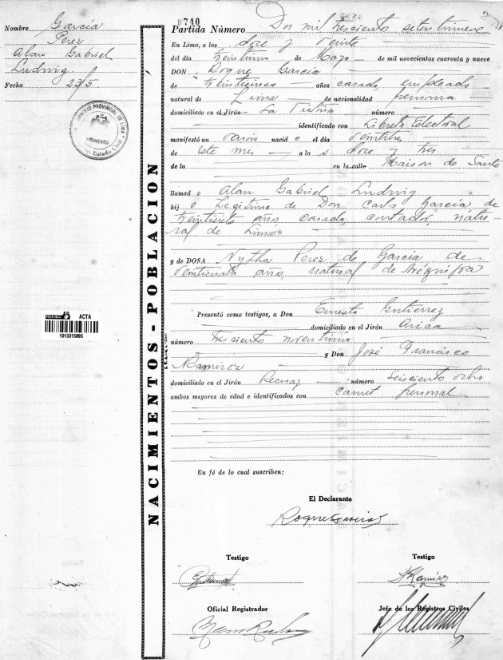 Nombre García
Perez
Alan Gabriel
Ludwig
Fecha 23/5
0740
Partida Número Dos mil tresciento
En Lima, a las doce y veinte
del día de Mayo de mil novecientos cuarenta y nueve
DON Roque García
de años casado, empleado
natural de Lima de nacionalidad peruana
domiciliado en Jirón La número
identificado con Libreta Electoral
manifestó un varón nacid o el día
de este mes a la s doce y tres
de la en la calle Maison de Santé
llamad o Alan Gabriel Ludwig
hij o Legítimo de Don Carlos García de
veintisiete años casado, contador, natu-
ral de Lima
y de DOÑA Nytha Perez de García de
años, natural de Arequipa
Presentó como testigos, a Don Ernesto Gutierrez
domiciliado en el Jirón Arica
número
y Don José Francisco
Ramirez
domiciliado en el Jirón número seisciento ocho
ambos mayores de edad é identificados con carnet personal
En fé de lo cual suscriben:
El Declarante
Testigo Testigo
Oficial Registrador Jefe de los Registros Civiles
NACIMIENTOS - POBLACION
ACTA